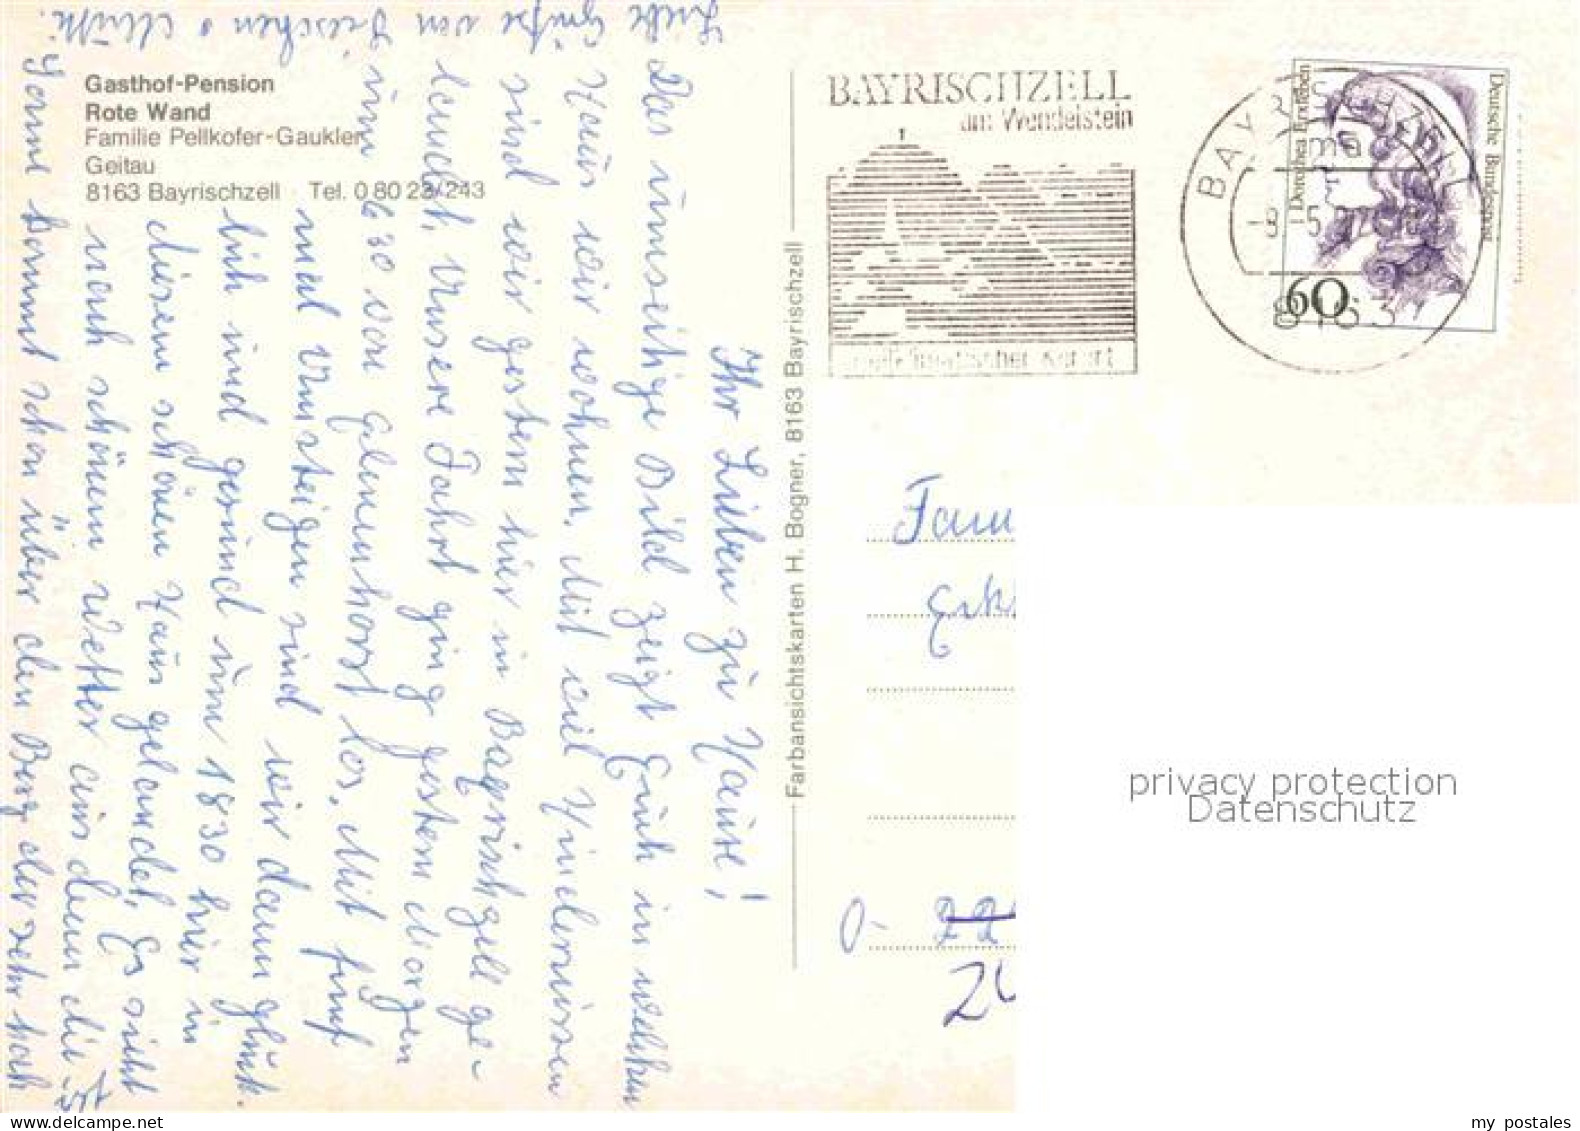 Gasthof-Pension
Rote Wand
Familie Pellkofer-Gaukler
Geitau
8163 Bayrischzell Tel. 0 80 23/243
Ihr Lieben zu Hause!
Das umseitige Bild zeigt Euch in welchen
Haus wir wohnen. Mit viel Hindernissen
sind wir gestern hier in Bayrischzell ge-
landet. Unsere Fahrt ging gestern Morgen
um 6 30 von Elmenhorst los. Mit fünf
mal Umsteigen sind wir dann glück-
lich und gesund um 18 30 hier in
diesem schönen Haus gelandet. Es sieht
nach schönem Wetter aus denn die
Sonne kommt schon über den Berg der sehr hoch
ist
Liebe Grüße von Lieschen + Mutti.
Farbansichtskarten H. Bogner, 8163 Bayrischzell
BAYRISCHZELL
am Wendelstein
heilklimatischer Kurort
BAYRISCHZELL
8163
Deutsche Bundespost
60
Fam
O- 22
privacy protection
Datenschutz
my postales